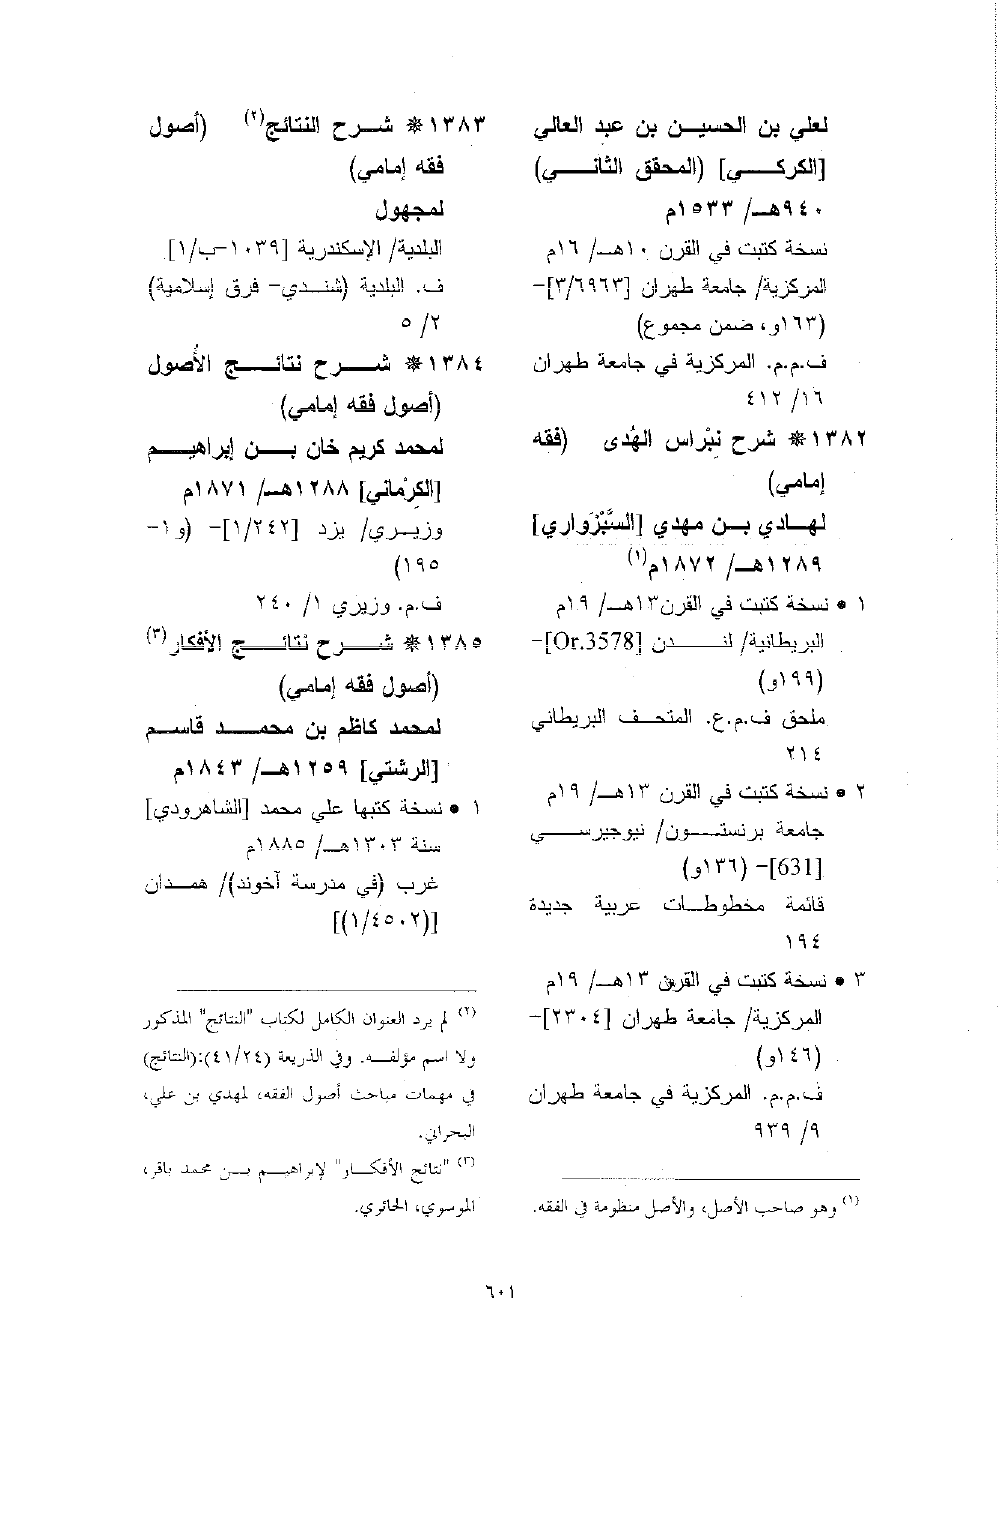 لعلي بن الحسين بن عبد العالي
[الكركي] (المحقق الثاني)
٩٤٠هـ/ ١٥٣٣م
نسخة كتبت في القرن ١٠هـ/ ١٦م
المركزية/ جامعة طهران [٣/٦٩٦٣]-
(١٦٣و، ضمن مجموع)
ف.م.م. المركزية في جامعة طهران
١٦/ ٤١٢
١٣٨٢* شرح نبْراس الهُدى (فقه
إمامي)
لهادي بن مهدي [السَّبْزَواري]
١٢٨٩هـ/ ١٨٧٢م(١)
١ • نسخة كتبت في القرن١٣هـ/ ١٩م
البريطانية/ لندن [Or.3578]-
(١٩٩و)
ملحق ف.م.ع. المتحف البريطاني
٢١٤
٢ • نسخة كتبت في القرن ١٣هـ/ ١٩م
جامعة برنستون/ نيوجيرسي
[631]- (١٣٦و)
قائمة مخطوطات عربية جديدة
١٩٤
٣ • نسخة كتبت في القرن ١٣هـ/ ١٩م
المركزية/ جامعة طهران [٢٣٠٤]-
(١٤٦و)
ف.م.م. المركزية في جامعة طهران
٩/ ٩٣٩
(١) وهو صاحب الأصل، والأصل منظومة في الفقه.
١٣٨٣* شرح النتائج(٢) (أصول
فقه إمامي)
لمجهول
البلدية/ الإسكندرية [١٠٣٩-ب/١]
ف. البلدية (شندي- فرق إسلامية)
٢/ ٥
١٣٨٤* شرح نتائج الأُصول
(أصول فقه إمامي)
لمحمد كريم خان بن إبراهيم
[الكرْماني] ١٢٨٨هـ/ ١٨٧١م
وزيري/ يزد [١/٢٤٢]- (و١-
١٩٥)
ف.م. وزيري ١/ ٢٤٠
١٣٨٥* شرح نتائج الأفكار(٣)
(أصول فقه إمامي)
لمحمد كاظم بن محمد قاسم
[الرشتي] ١٢٥٩هـ/ ١٨٤٣م
١ • نسخة كتبها علي محمد [الشاهرودي]
سنة ١٣٠٣هـ/ ١٨٨٥م
غرب (في مدرسة آخوند)/ همدان
[(١/٤٥٠٢)]
(٢) لم يرد العنوان الكامل لكتاب "النتائج" المذكور
ولا اسم مؤلفه. وفي الذريعة (٤١/٢٤):(النتائج)
في مهمات مباحث أصول الفقه، لمهدي بن علي،
البحراني.
(٣) "نتائج الأفكار" لإبراهيم بن محمد باقر،
الموسوي، الحائري.
٦٠١